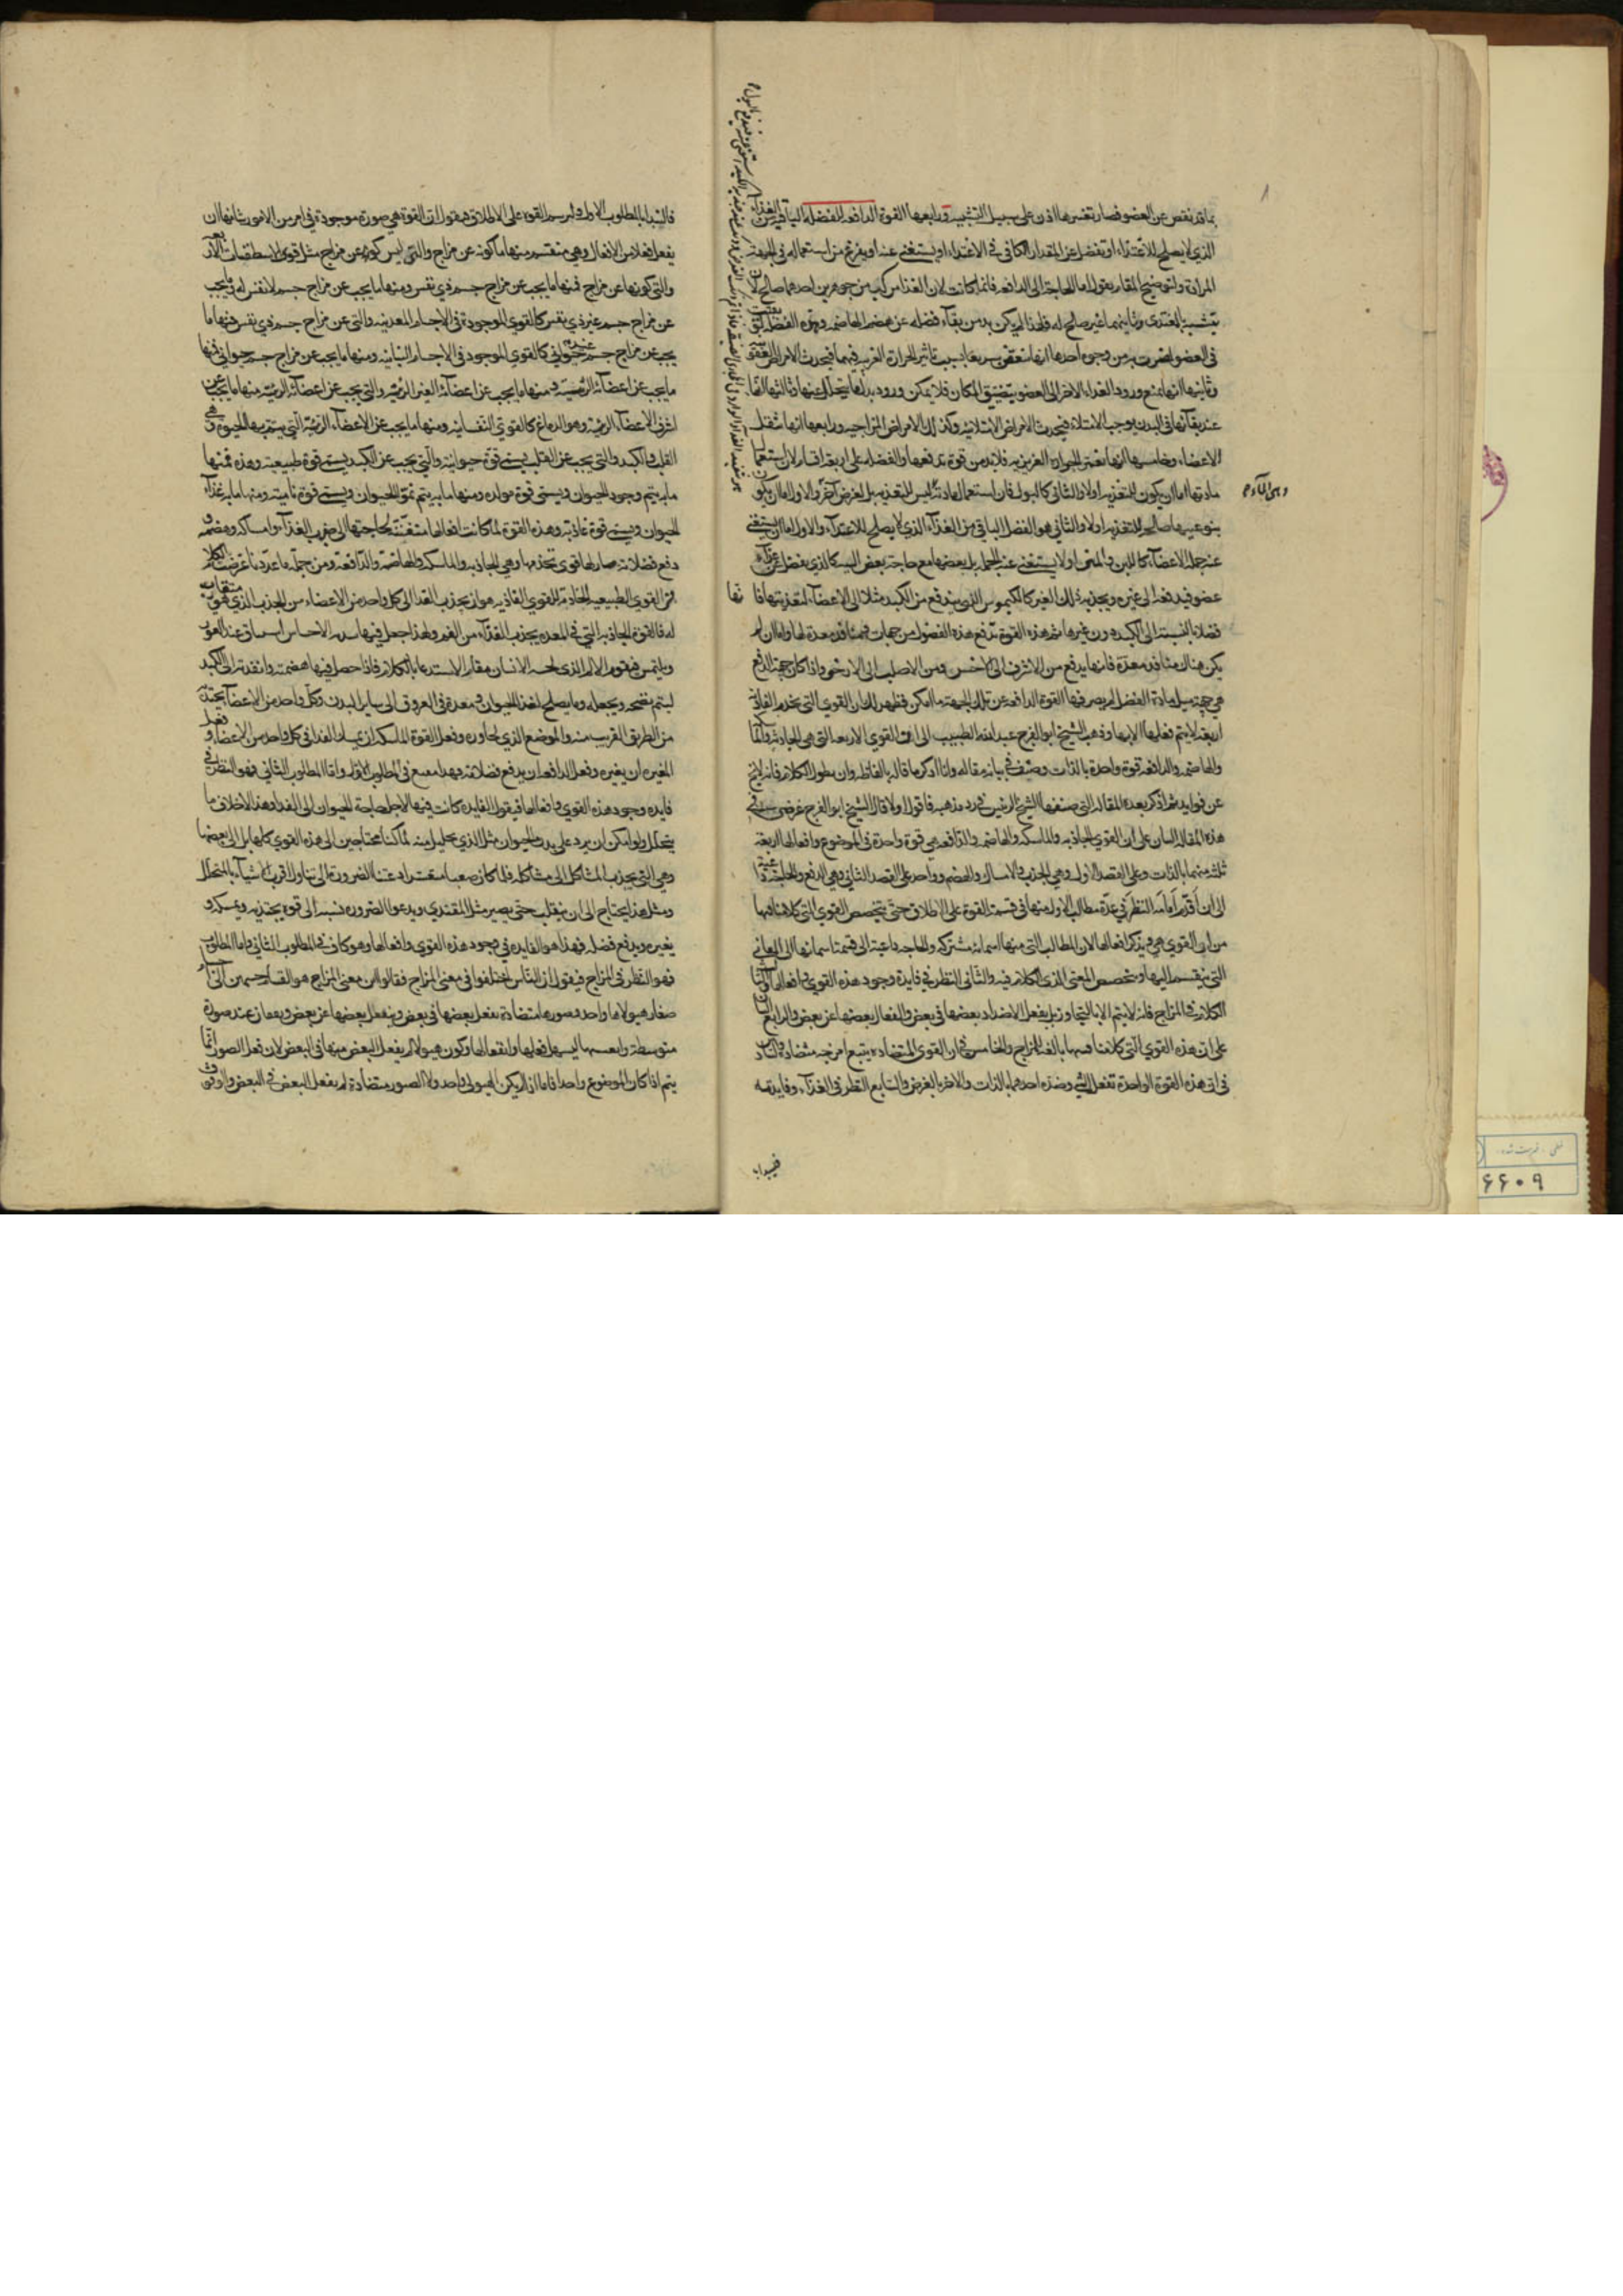 بما قد نقص عن العضو فصار تفسيرها اذن على سبيل التشبيه ورابعها القوة الدافعه للفضله الباقيه من الغذاء
الذي لا يصلح للاغتذاء او تفضل عن المقدار الكافي في الاغتذاء او يستغنى عنه او يفرغ من استعماله في الجهة
المرادة ولتوضيح المقام يقول اما الحاجة الى الدافعه فانما كانت لان الغذا مركب من جوهرين احدهما صالح لان
يتشبه بالمغتذى وثانيهما غير صالح له فلهذا لم يكن بد من بقاء فضله عن هضم الهاضمه وهذه الفضله لو بقيت
في العضو لضرت به من وجوه احدها انها تتعفن سريعا بسبب تاثير الحرارة الغريبه فيها فيحدث الامراض العفنية
وثانيها انها تمنع ورود الغذاء الاخر الى العضو بتضييق المكان فلا يمكن ورود بدل ما يتحلل عنها وثالثها انها
عند بقائها في البدن يوجب الامتلاء فيحدث الامراض الامتلائيه وكذلك الامراض المزاجيه ورابعها انها تثقل
الاعضاء وخامسها انها تغمر الحرارة الغريزيه فلا بد من قوة تدفعها والفضله على اربعة اقسام لان استعمال
مادتها اما ان يكون للتغذيه اولا والثاني كالبول فان استعمال مادته ليس للتغذيه بل لغرض آخر والاول اما ان يكون
بنوعيها صالحا للتغذيه اولا والثاني هو الفضل الباقي من الغذاء الذي لا يصلح للاغتذاء والاول اما ان يستغني
عنه جملة الاعضاء كاللبن والمني اولا يستغنى عنه الجملة بل بعضها مع حاجة بعض اليه كالذي يفضل عن غذاء
عضو فيدفعه الى غيره ويجذبه ذلك الغير كالكيموس الذي يندفع من الكبد مثلا الى الاعضاء لتغذيتها فانها
فضلة بالنسبة الى الكبد دون غيرها ثم هذه القوة تدفع هذه الفضول من جهات ومنافذ معدة لها وان لم
يكن هناك منافذ معدة فانها يدفع من الاشرف الى الاخس ومن الاصلب الى الارخى واذا كان جهة الدفع
هي جهة ميل مادة الفضل لم يصرفها القوة الدافعه عن تلك الجهة ما امكن فظهر لك ان القوى التي تخدم الغاذية
اربعة لا يتم فعلها الا بها وذهب الشيخ ابو الفرج عبد الله الطبيب الى ان القوى الاربعه التي هي الجاذبه والماسكه
والهاضمه والدافعه قوة واحدة بالذات وصنف في بيانه مقاله وانا اذكر ما قاله بالفاظه وان يطول الكلام فانه لا يخ
عن فوايد ثم اذكر بعده المقاله التي صنفها الشيخ الرئيس في رد مذهبه فاقول اولا قال الشيخ ابو الفرج غرضي في
هذه المقاله البيان على ان القوى الجاذبه والماسكه والهاضمه والدافعه هي قوة واحدة في الموضوع وافعالها اربعة
ثلثة منها بالذات وعلى القصد الاول وهي الجذب والامساك والهضم وواحد على القصد الثاني وهي الدفع والحاجة داعية
الى ان اقدم امامه النظر في عدة مطالب الاول منها في قسمة القوة على الاطلاق حتى يتخصص القوى التي كلامنا فيها
من اي القوى هي ويذكر افعالها لان المطالب التي منها اسماؤه مشتركه والحاجه داعية الى قسمة اسمائها الى المعاني
التي ينقسم اليها ويخصص المعنى الذي الكلام فيه والثاني النظر في فايدة وجود هذه القوى وافعالها والثالث
الكلام في المزاج فانه لا يتم الا بالتجاور بل بفعل الاضداد بعضها في بعض وانفعال بعضها عن بعض والرابع البيان
على ان هذه القوى التي كلامنا فيها تابعة للمزاج والخامس في ان القوى المتضاده يتبع امزجه متضادة والسادس
في ان هذه القوة الواحدة تفعل الشي وضده احدهما بالذات والاخر بالعرض والسابع النظر في الغذاء وفايدته
فنبدا ب
فالنبدا بالمطلوب الاول ولنرسم القوه على الاطلاق فنقول ان القوة هي صورة موجودة في امر من الامور شانها ان
يفعل فعلا من الافعال وهي منقسمة منها ما كونه عن مزاج والتي ليس كونها عن مزاج مثل قوى الاسطقسات الاربع
والتي كونها عن مزاج فمنها ما يجب عن مزاج جسم ذي نفس ومنها ما يجب عن مزاج جسم لا نفس له وما يجب
عن مزاج جسم غير ذي نفس كالقوى الموجودة في الاجسام المعدنيه والتي عن مزاج جسم ذي نفس فمنها ما
يجب عن مزاج جسم غير حيواني كالقوى الموجود في الاجسام النباتيه ومنها ما يجب عن مزاج جسم حيواني فمنها
ما يجب عن اعضائه الرئيسيه ومنها ما يجب عن اعضائه الغير الرئيسه والتي يجب عن اعضائه الرئيسه منها ما يجب عن
اشرف الاعضاء الرئيسه وهو الدماغ كالقوى النفسانيه ومنها ما يجب عن الاعضاء الرئيسة التي يتم بها الحيوة وهي
القلب والكبد والتي يجب عن القلب يسمى قوة حيوانية والتي يجب عن الكبد يسمى قوة طبيعية وهذه فمنها
ما به يتم وجود الحيوان ويسمى قوة مولده ومنها ما به يتم نمو الحيوان ويسمى قوة نامية ومنها ما به غذاء
الحيوان ويسمى قوة غاذية وهذه القوة لما كانت افعالها متفننة لحاجتها الى جذب الغذاء وامساكه وهضمه و
دفع فضلاته صار لها قوى تخدمها وهي الجاذبه والماسكه والهاضمة والدافعة ومن جملة ما عددنا غرضنا الكلام
في القوى الطبيعيه الخادمة للقوى الغاذيه هو ان يجذب الغدا الى كل واحد من الاعضاء من الجذب الذي هو
له فالقوة الجاذبه التي في المعده يجذب الغذاء من الفم ولهذا جعل فيها
ويلتمس فيقوم الالم الذي لحسه الانسان مقام الاستدعاء بالكلام فاذا حصل فيها هضمته وانفذته الى الكبد
ليتم نضجه ويجعله وما يصلح لغذا الحيوان معدة في العروق الى ساير البدن وكل واحد من الاعضاء يجتذبه
من الطريق القريب منه والموضع الذي يجاوره وفعل القوة الماسكه ان يمسك الغذا في كل واحد من الاعضاء وفعل
المغيره ان يغيره وفعل الدافعه ان يدفع فضلاته فهذا مقنع في المطلوب الاول واما المطلوب الثاني فهو النظر في
فايده وجود هذه القوى وافعالها فيقول الفايده كانت فيها لاجل حاجة الحيوان الى الغذا وهذا لاخلاف ما
يتحلل ولو امكن ان يرد على بدن الحيوان مثل الذي تحلل منه لما كنا محتاجين الى هذه القوى كلها بل الى بعضها
وهي التي يجذب المشاكل الى مشاكله فلما كان صعبا دعتنا الضرورة الى تناول اقرب الاشياء بالمتحلل
ومثل هذا يحتاج الى ان ينقلب حتى يصير مثل المغتذي ويدعو الضروره بسببه الى قوه يجتذبه ويمسكه و
يغيره ويدفع فضله فهذا هو الفايده في وجود هذه القوى وافعالها وهو كاف في المطلوب الثاني واما المطلوب
فهو النظر في المزاج فيقول ان الناس اختلفوا في معنى المزاج فقالوا ان معنى المزاج هو التقاء جسمين الى اجزاء
صغار هيولاها واحد وصورها متضادة يفعل بعضها في بعض وينفعل بعضها عن بعض ويقف عند صورة
متوسطة فعلها وانفعالها وكون هيولا لم يفعل البعض منها في البعض لان فعل الصور انما
يتم اذا كان الموضوع واحدا فاما اذا لم يكن الهيولي واحد ولا الصور متضادة لم يفعل البعض في البعض والوقوف